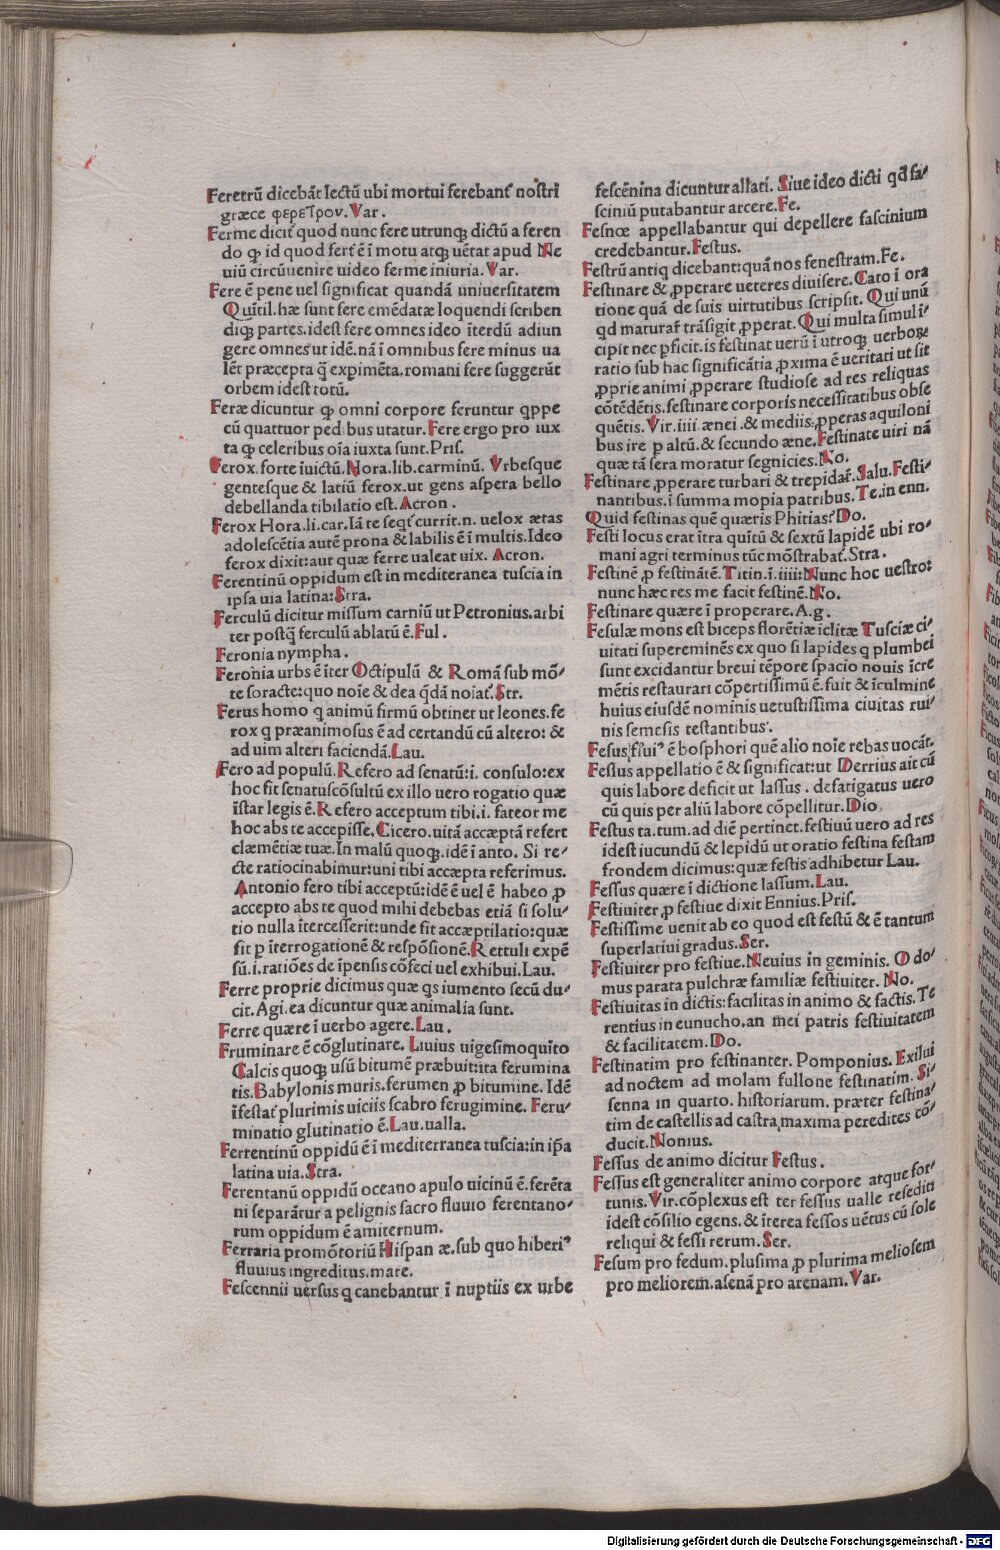 Feretrū dicebāt lectū ubi mortui ferebant᷑ nostri
græce φερετρον. Var.
Ferme dicit᷑ quod nunc fere utrunq; dictū a feren
do ꝙ id quod fert᷑ ē ī motu atq; uētat apud Ne
uiū circūuenire uideo ferme iniuria. Var.
Fere ē pene uel significat quandā uniuersitatem
Quītil. hæ sunt fere emēdatæ loquendi scriben
diq; partes. idest fere omnes ideo īterdū adiun
gere omnes ut idē. nā ī omnibus fere minus ua
lēt præcepta q̄ expimēta. romani fere suggerūt
orbem idest totū.
Feræ dicuntur ꝙ omni corpore feruntur qppe
cū quattuor pedibus utatur. Fere ergo pro iux
ta ꝙ celeribus oīa iuxta sunt. Pris.
Ferox. forte īuictū. Nora. lib. carminū. Vrbesque
gentesque & latiū ferox. ut gens aspera bello
debellanda tibilatio est. Acron.
Ferox Hora. li. car. Iā te seqt᷑ currit. n. uelox ætas
adolescētia autē prona & labilis ē ī multis. Ideo
ferox dixit: aut quæ ferre ualeat uix. Acron.
Ferentinū oppidum est in mediteranea tuscia in
ipsa uia latina: Stra.
Ferculū dicitur missum carniū ut Petronius. arbi
ter postq̄ ferculū ablatū ē. Ful.
Feronia nympha.
Feronia urbs ē īter Octipulū & Romā sub mō⸗
te soracte: quo noīe & dea qdā noīat᷑. Str.
Ferus homo q animū firmū obtinet ut leones. fe
rox q præanimosus ē ad certandū cū altero: &
ad uim alteri faciendā. Lau.
Fero ad populū. Refero ad senatū: i. consulo: ex
hoc fit senatuscōsultū ex illo uero rogatio quæ
īstar legis ē. Refero acceptum tibi. i. fateor me
hoc abs te accepisse. Cicero. uitā accæptā refert
clæmētiæ tuæ. In malū quoq;. idē ī anto. Si re⸗
cte ratiocinabimur: uni tibi accæpta referimus.
Antonio fero tibi acceptū: idē ē uel ē habeo ꝓ
accepto abs te quod mihi debebas etiā si solu⸗
tio nulla ītercesserit: unde fit accæptilatio: quæ
fit p īterrogationē & respōsionē. Rettuli expē
sū. i. ratiōes de īpensis cōfeci uel exhibui. Lau.
Ferre proprie dicimus quæ qs iumento secū du⸗
cit. Agi. ea dicuntur quæ animalia sunt.
Ferre quære ī uerbo agere. Lau.
Fruminare ē cōglutinare. Liuius uigesimoquīto
Calcis quoq; usū bitumē præbuit: ita ferumina
tis. Babylonis muris. ferumen ꝓ bitumine. Idē
īfestat᷑ plurimis uiciis scabro ferugimine. Feru⸗
minatio glutinatio ē. Lau. ualla.
Ferrentinū oppidū ē ī mediterranea tuscia: in ip̄a
latina uia. Stra.
Ferentanū oppidū oceano apulo uicinū ē. ferēta
ni separātur a pelignis sacro fluuio ferentano⸗
rum oppidum ē amiternum.
Ferraria promōtoriū Hispan æ. sub quo hiberi⁹
fluuius ingreditus. mare.
Fescennii uersus q canebantur ī nuptiis ex urbe
fescēnina dicuntur allati. Siue ideo dicti qd̄ fa⸗
sciniū putabantur arcere. Fe.
Fesnoe appellabantur qui depellere fascinium
credebantur. Festus.
Festrū antiq dicebant: quā nos fenestram. Fe.
Festinare & ꝓperare ueteres diuisere. Cato ī ora
tione quā de suis uirtutibus scripsit. Qui unū
qd maturat᷑ trāsigit ꝓperat. Qui multa simul ī⸗
cipit nec ꝑficit. is festinat uerū ī utroq; uerborꝝ
ratio sub hac significātia ꝓxima ē ueritati ut sit
ꝓprie animi ꝓperare studiose ad res reliquas
cōtēdētis. festinare corporis necessitatibus obse
quētis. Vir. iiii. ænei. & mediis ꝓperas aquiloni
bus ire p altū. & secundo æne. Festinate uiri nā
quæ tā sera moratur segnicies. No.
Festinare ꝓperare turbari & trepidar̄. Salu. Festi⸗
nantibus. ī summa mopia patribus. Te. in enn.
Quid festinas quē quæris Phitias? Do.
Festi locus erat ītra quītū & sextū lapidē ubi ro⸗
mani agri terminus tūc mōstrabat᷑. Stra.
Festinē ꝓ festinātē. Titin. ī. iiii: Nunc hoc uestro:
nunc hæc res me facit festinē. No.
Festinare quære ī properare. A. g.
Fesulæ mons est biceps florētiæ īclitæ Tusciæ ci⸗
uitati supereminēs ex quo si lapides q plumbei
sunt excidantur breui tēpore spacio nouis īcre
mētis restaurari cōpertissimū ē. fuit & īculmine
huius eiusdē nominis uetustissima ciuitas rui⸗
nis semesis testantibus.
Fesus fluui⁹ ē bosphori quē alio noīe rebas uocāt.
Fessus appellatio ē & significat: ut Derrius ait cū
quis labore deficit ut lassus. defatigatus uero
cū quis per aliū labore cōpellitur. Dio.
Festus ta. tum. ad diē pertinet. festiuū uero ad res
idest iucundū & lepidū ut oratio festina festam
frondem dicimus: quæ festis adhibetur Lau.
Fessus quære ī dictione lassum. Lau.
Festiuiter ꝓ festiue dixit Ennius. Pris.
Festissime uenit ab eo quod est festū & ē tantum
superlatiui gradus. Ser.
Festiuiter pro festiue. Neuius in geminis. O do⸗
mus parata pulchræ familiæ festiuiter. No.
Festiuitas in dictis: facilitas in animo & factis. Te
rentius in eunucho. an mei patris festiuitatem
& facilitatem. Do.
Festinatim pro festinanter. Pomponius. Exilui
ad noctem ad molam fullone festinatim. Si⸗
senna in quarto. historiarum. præter festina⸗
tim de castellis ad castra maxima peredites cō⸗
ducit. Nonius.
Fessus de animo dicitur Festus.
Fessus est generaliter animo corpore atque for⸗
tunis. Vir. cōplexus est ter fessus ualle resediti
idest cōsilio egens. & īterea fessos uētus cū sole
reliqui & fessi rerum. Ser.
Fesum pro fedum. plusima ꝓ plurima meliosem
pro meliorem. asenā pro arenam. Var.
Digitalisierung gefördert durch die Deutsche Forschungsgemeinschaft - DFG